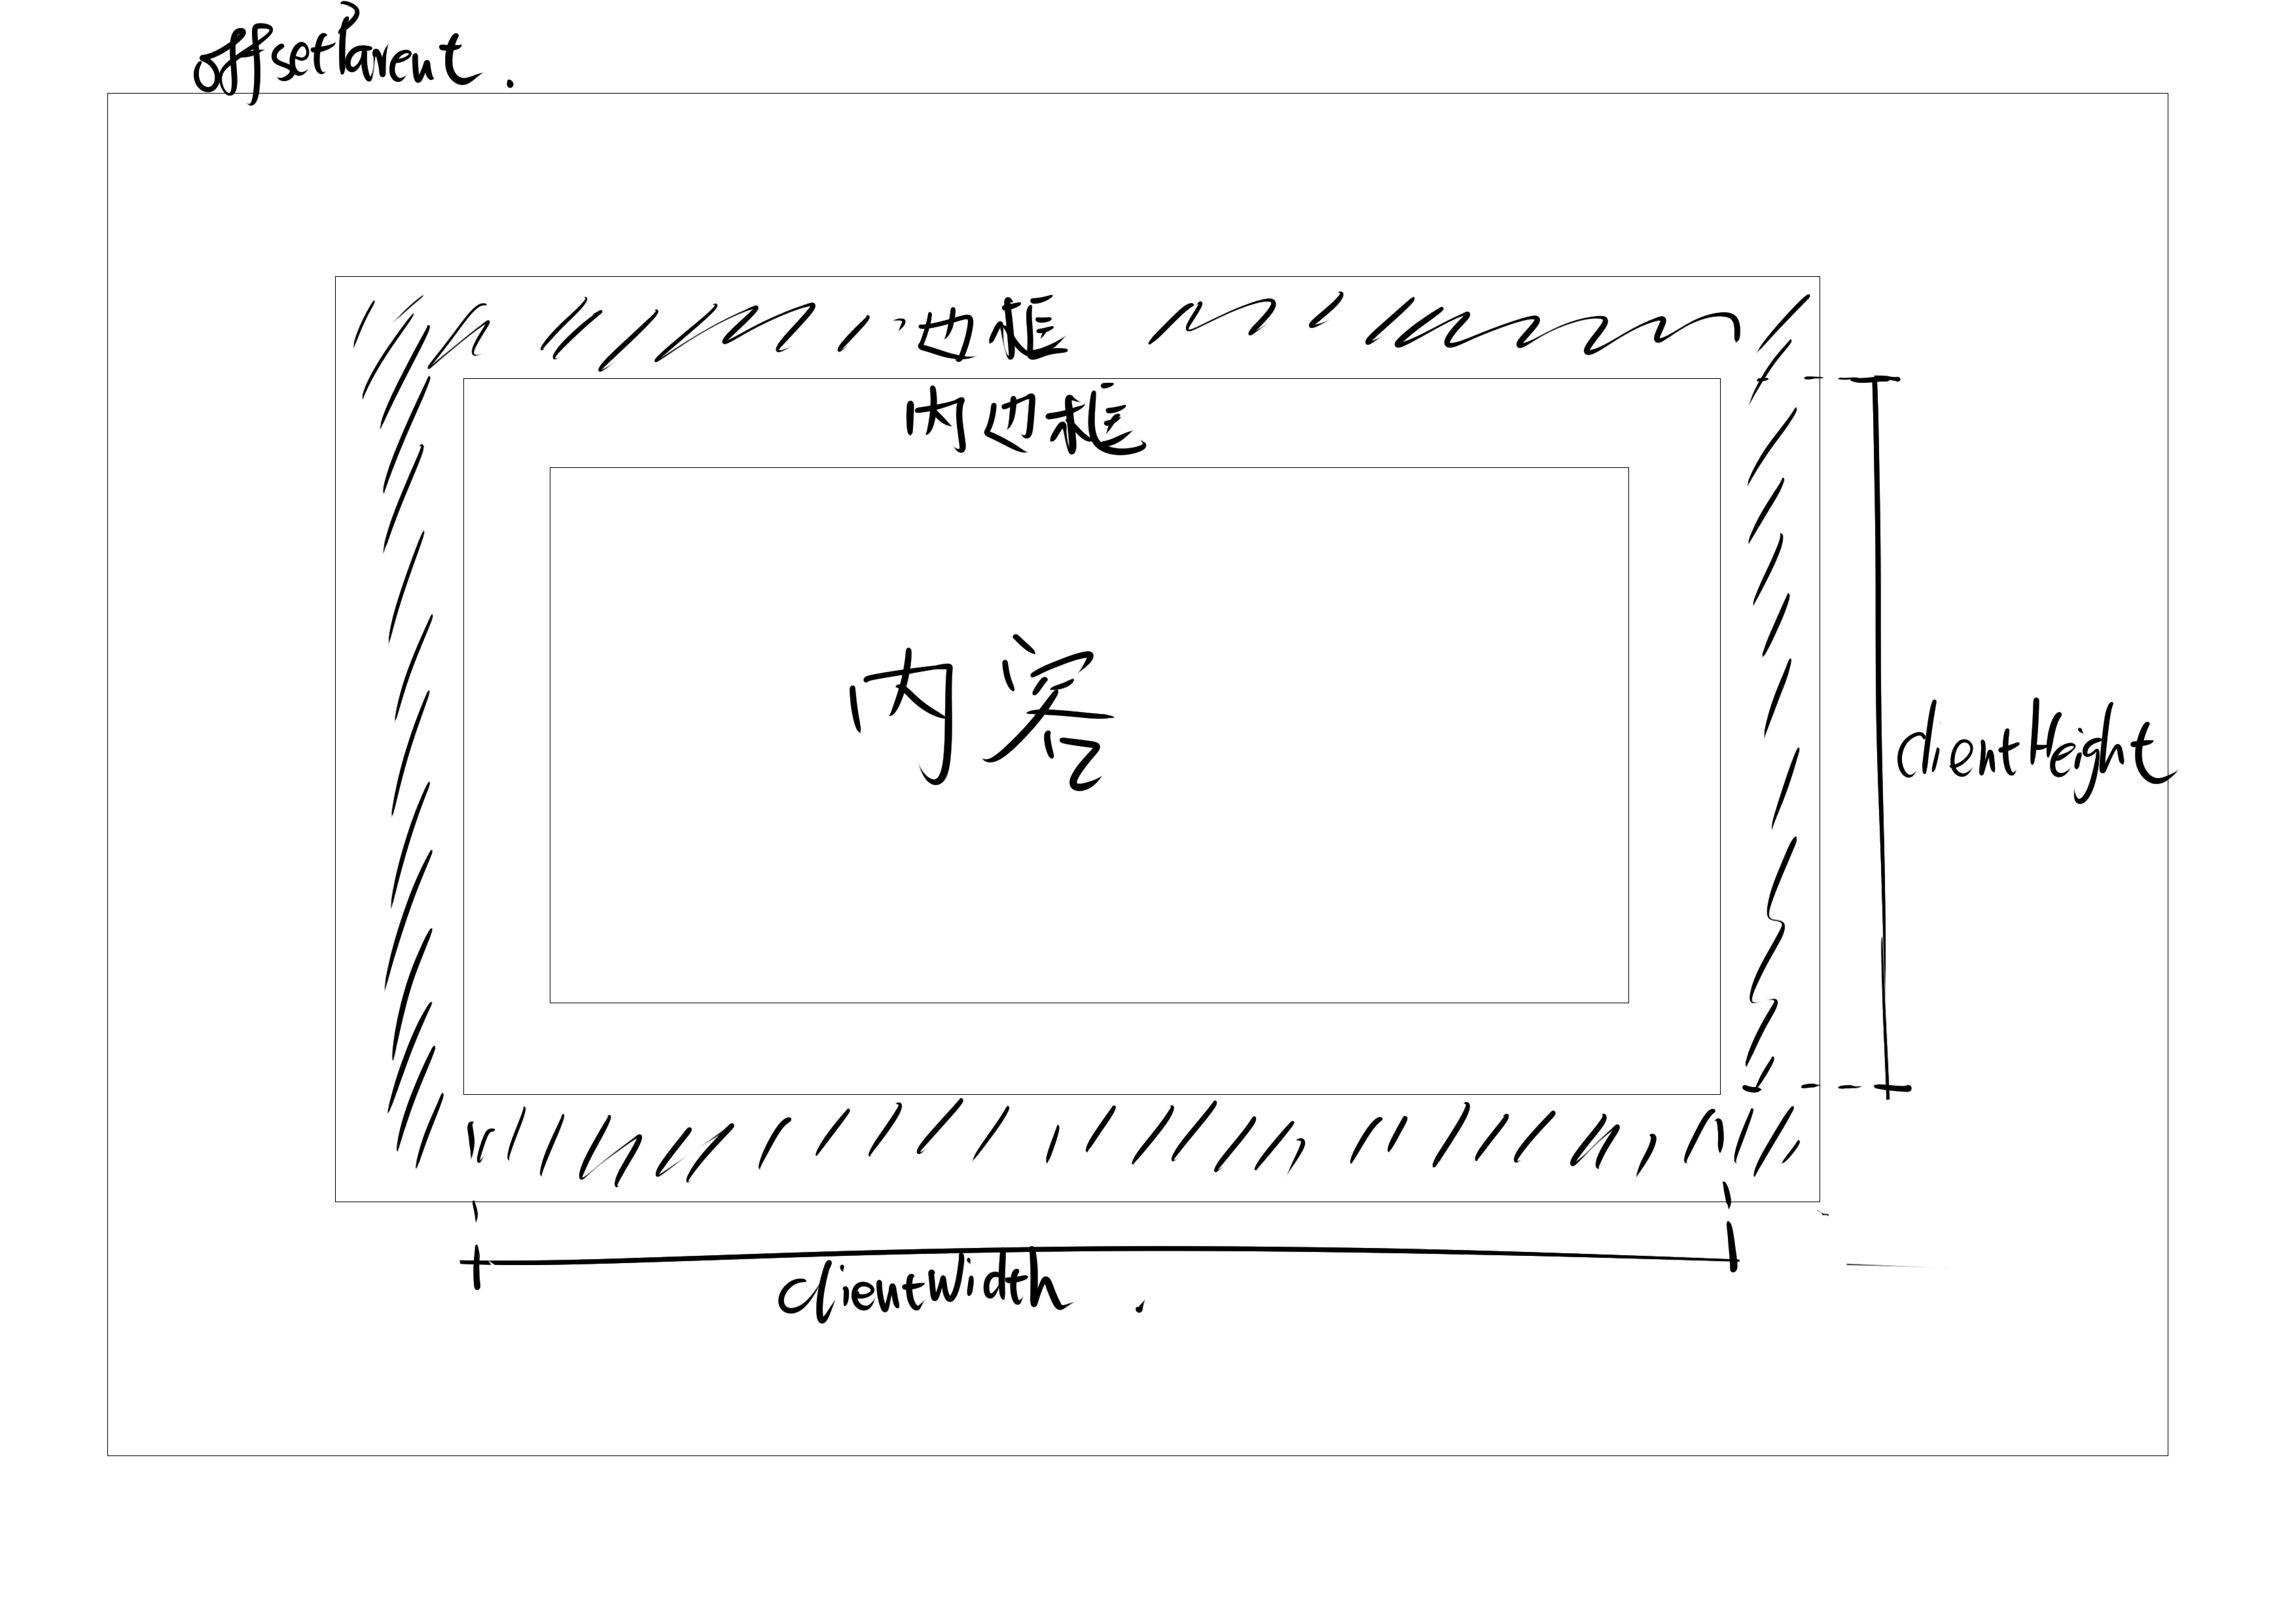 offsetParent.
边框
内边框
内容
clientHeight
clientWidth.